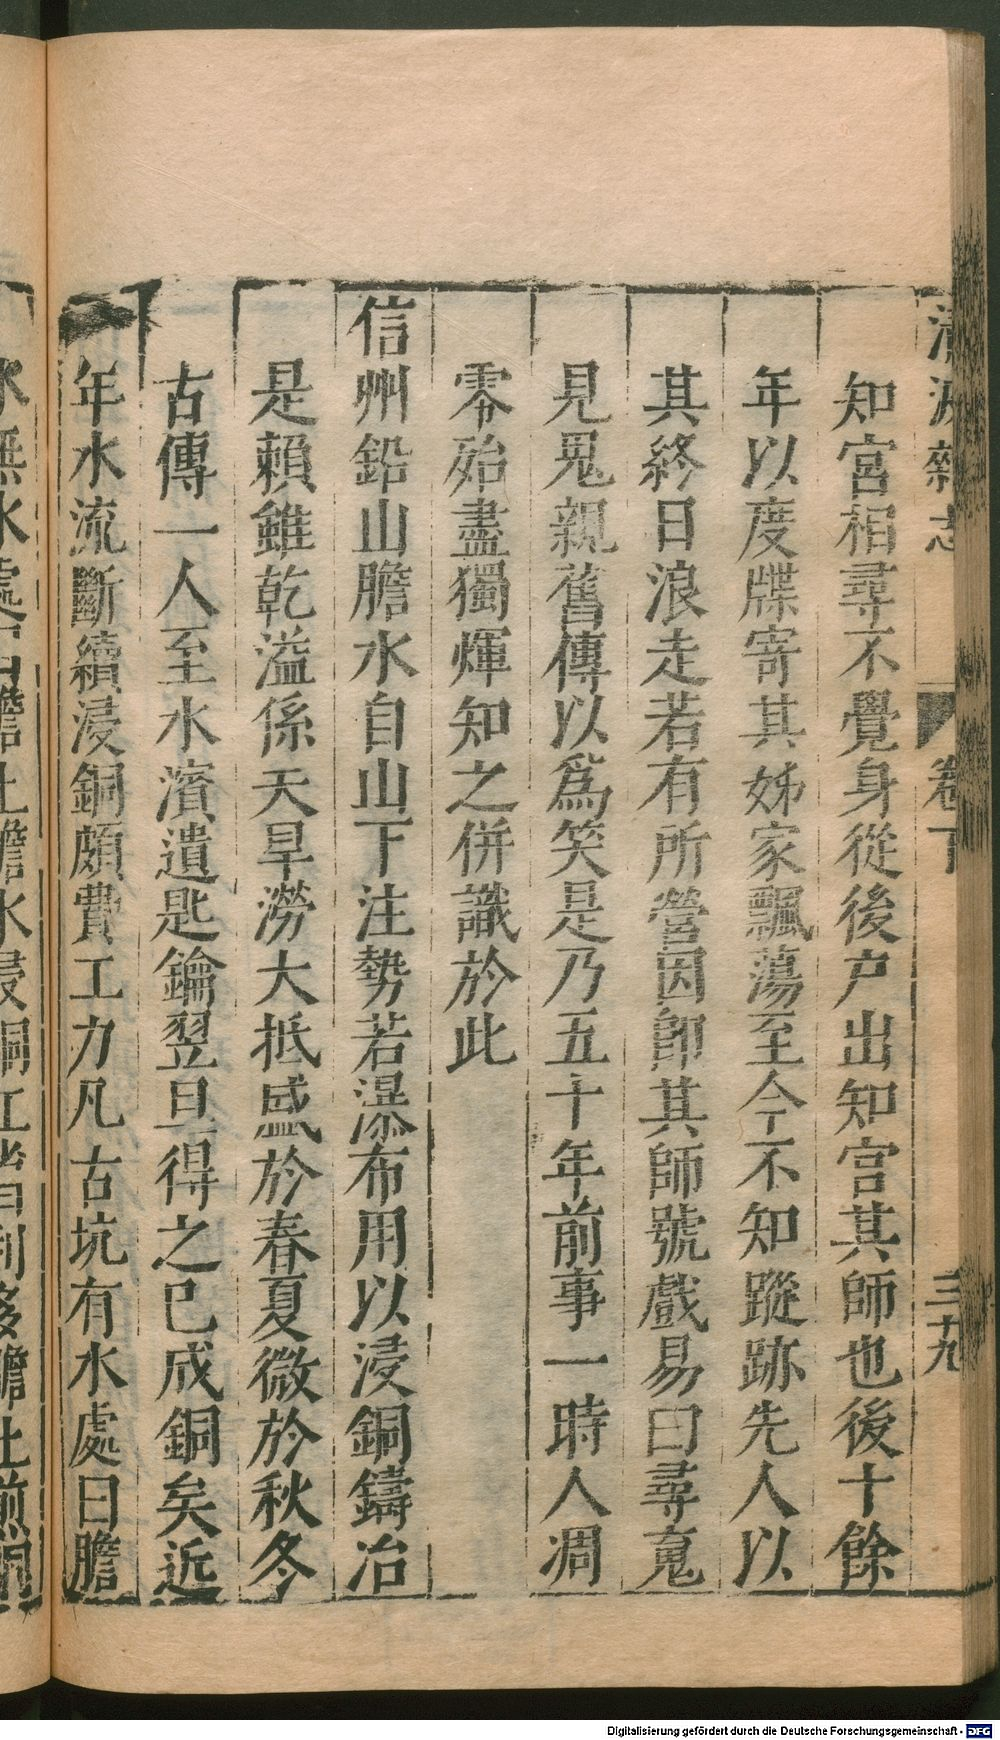 清波雜志 卷下 三十九
知宮相尋不覺身從後户出知宮其師也後十餘
年以度牒寄其姊家飄蕩至今不知蹤跡先人以
其終日浪走若有所營因卽其師號戲易曰尋䰟
見䰟親舊傳以爲笑是乃五十年前事一時人凋
零殆盡獨煇知之併識於此
信州鉛山膽水自山下注勢若瀑布用以浸銅鑄冶
是賴雖乾溢係天旱澇大抵盛於春夏微於秋冬
古傳一人至水濱遺匙鑰翌旦得之已成銅矣近
年水流斷續浸銅頗費工力凡古坑有水處曰膽
水無水處曰膽土膽水浸銅工省利多膽土煎銅
Digitalisierung gefördert durch die Deutsche Forschungsgemeinschaft - DFG